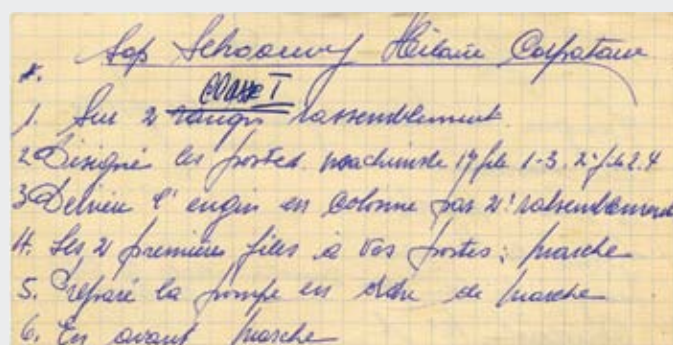 Sap Schoouwey Hilaire Corpataux
Classe I
1. Sur 2 rangs rassemblement
2 Désigné les postes machiniste 1re file 1-3. 2e file 2.4
3 Derrière l'engin en colonne par 2! rassemblement
4. Les 2 première files à vos postes: marche
5. Préparé la pompe en ordre de marche
6. En avant marche